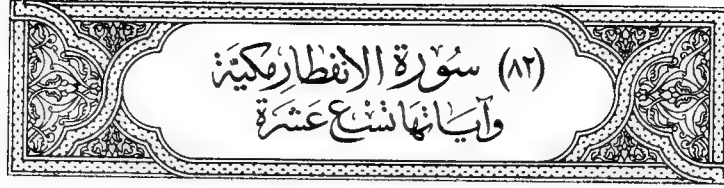 (٨٢) سُورَة الانفطار مكيّة
وَآيَاتهَا تسْع عَشرَة